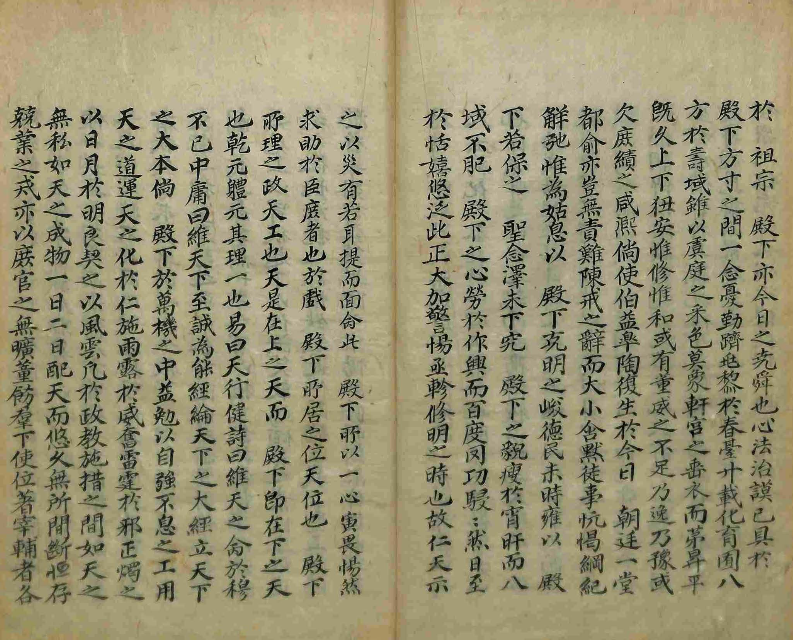 於 祖宗 殿下亦今日之堯舜也心法治謨已具於
殿下方寸之間一念憂勤躋兆黎於春臺廿載化育囿八
方於壽域雖以虞庭之采色莫象軒宮之垂衣而第昇平
旣久上下狃安惟修惟和或有重威之不足乃逸乃豫或
欠庶績之咸熙倘使伯益臯陶復生於今日 朝廷一堂
都俞亦豈無責難陳戒之辭而大小含默徒事忨愒綱紀
觧弛惟為姑息以 殿下克明之峻德民未時雍以 殿
下若保之 聖念澤未下究 殿下之貌瘦於宵旰而八
域不肥 殿下之心勞於作興而百度罔功駸〻然日至
於恬嬉悠泛此正大加警惕亟軫修明之時也故仁天示
之以災有若耳提而面命此 殿下所以一心寅畏惕然
求助於臣庶者也於戱 殿下所居之位天位也 殿下
所理之政天工也天是在上之天而 殿下卽在下之天
也乾元體元其理一也易曰天行健詩曰維天之命於穆
不已中庸曰維天下至誠為能經綸天下之大經立天下
之大本倘 殿下於萬機之中益勉以自強不息之工用
天之道運天之化於仁施雨露於威奮雷霆於邪正燭之
以日月於明良契之以風雲凡於政教施措之間如天之
無私如天之成物一日二日配天而悠久無所間斷恒存
兢業之戒亦以庶官之無曠董飭羣下使位著宰輔者各